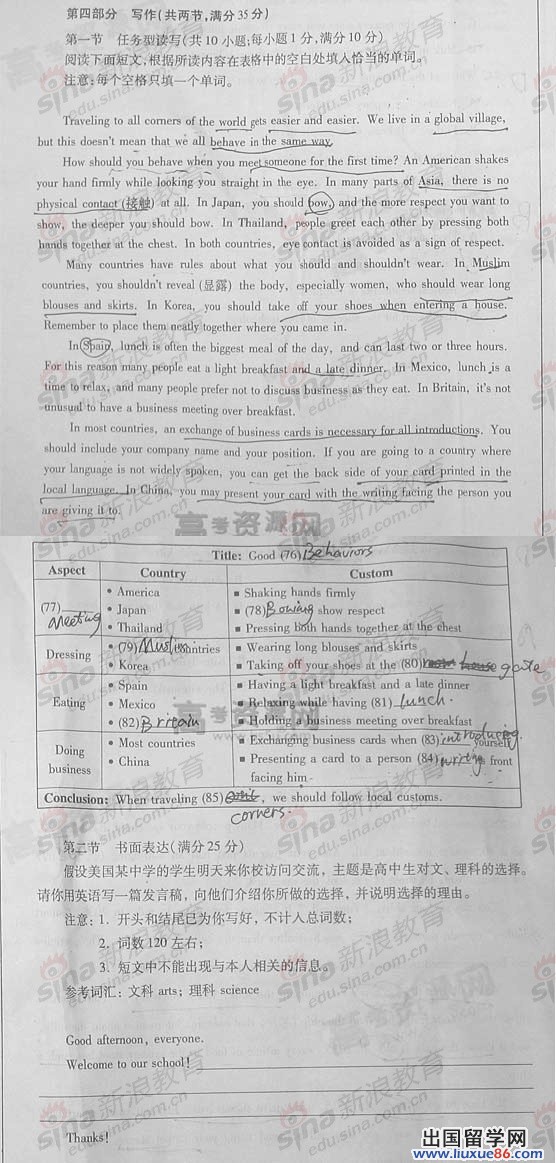 第四部分 写作(共两节,满分35分)
第一节 任务型读写(共10小题;每小题1分,满分10分)
阅读下面短文,根据所读内容在表格中的空白处填入恰当的单词。
注意:每个空格只填一个单词。
Traveling to all corners of the world gets easier and easier. We live in a global village,
but this doesn't mean that we all behave in the same way.
How should you behave when you meet someone for the first time? An American shakes
your hand firmly while looking you straight in the eye. In many parts of Asia, there is no
physical contact (接触) at all. In Japan, you should bow, and the more respect you want to
show, the deeper you should bow. In Thailand, people greet each other by pressing both
hands together at the chest. In both countries, eye contact is avoided as a sign of respect.
Many countries have rules about what you should and shouldn't wear. In Muslim
countries, you shouldn't reveal (显露) the body, especially women, who should wear long
blouses and skirts. In Korea, you should take off your shoes when entering a house.
Remember to place them neatly together where you came in.
In Spain, lunch is often the biggest meal of the day, and can last two or three hours.
For this reason many people eat a light breakfast and a late dinner. In Mexico, lunch is a
time to relax, and many people prefer not to discuss business as they eat. In Britain, it's not
unusual to have a business meeting over breakfast.
In most countries, an exchange of business cards is necessary for all introductions. You
should include your company name and your position. If you are going to a country where
your language is not widely spoken, you can get the back side of your card printed in the
local language. In China, you may present your card with the writing facing the person you
are giving it to.
高考资源网
Title: Good (76) Behaviors
Aspect Country Custom
(77) Meeting
• America ■ Shaking hands firmly
• Japan ■ (78) Bowing show respect
• Thailand ■ Pressing both hands together at the chest
Dressing • (79) Muslim countries ■ Wearing long blouses and skirts
• Korea ■ Taking off your shoes at the (80) gate
Eating • Spain ■ Having a light breakfast and a late dinner
• Mexico ■ Relaxing while having (81) lunch.
• (82) Britain ■ Holding a business meeting over breakfast
Doing business • Most countries ■ Exchanging business cards when (83) introducing yourself
• China ■ Presenting a card to a person (84) writing front
facing him
Conclusion: When traveling (85) corners, we should follow local customs.
第二节 书面表达(满分25分)
假设美国某中学的学生明天来你校访问交流,主题是高中生对文、理科的选择。
请你用英语写一篇发言稿,向他们介绍你所做的选择,并说明选择的理由。
注意:1. 开头和结尾已为你写好,不计入总词数;
2. 词数120左右;
3. 短文中不能出现与本人相关的信息。
参考词汇:文科 arts;理科 science
Good afternoon, everyone.
Welcome to our school!
Thanks!
sina 新浪教育
edu.sina.com.cn
出国留学网
www.liuxue86.com